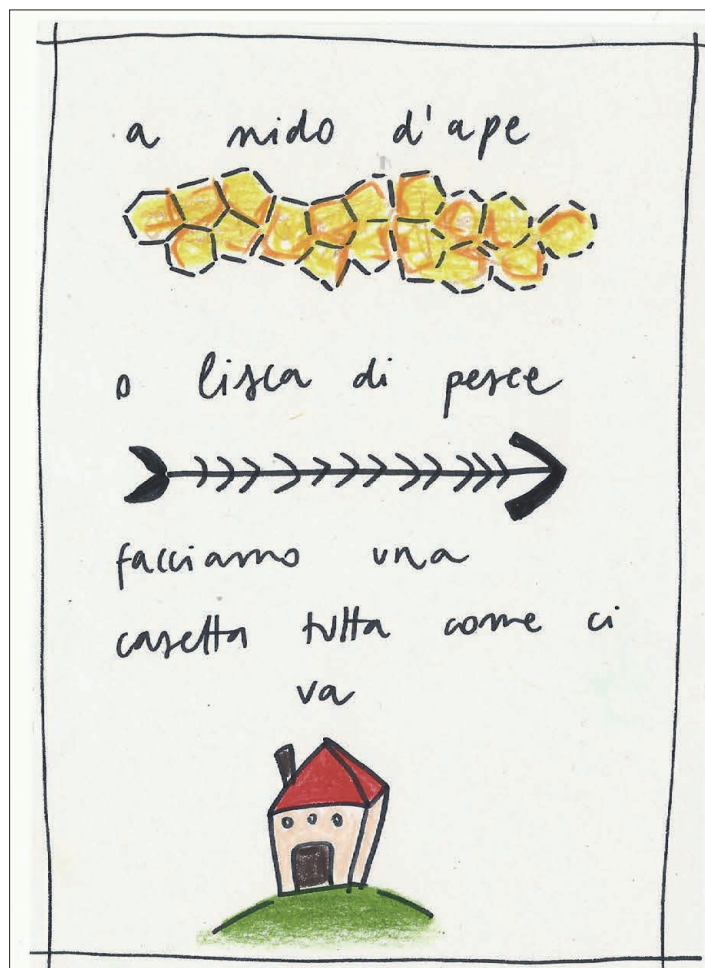 a nido d'ape
o lisca di pesce
facciamo una
casetta tutta come ci
va